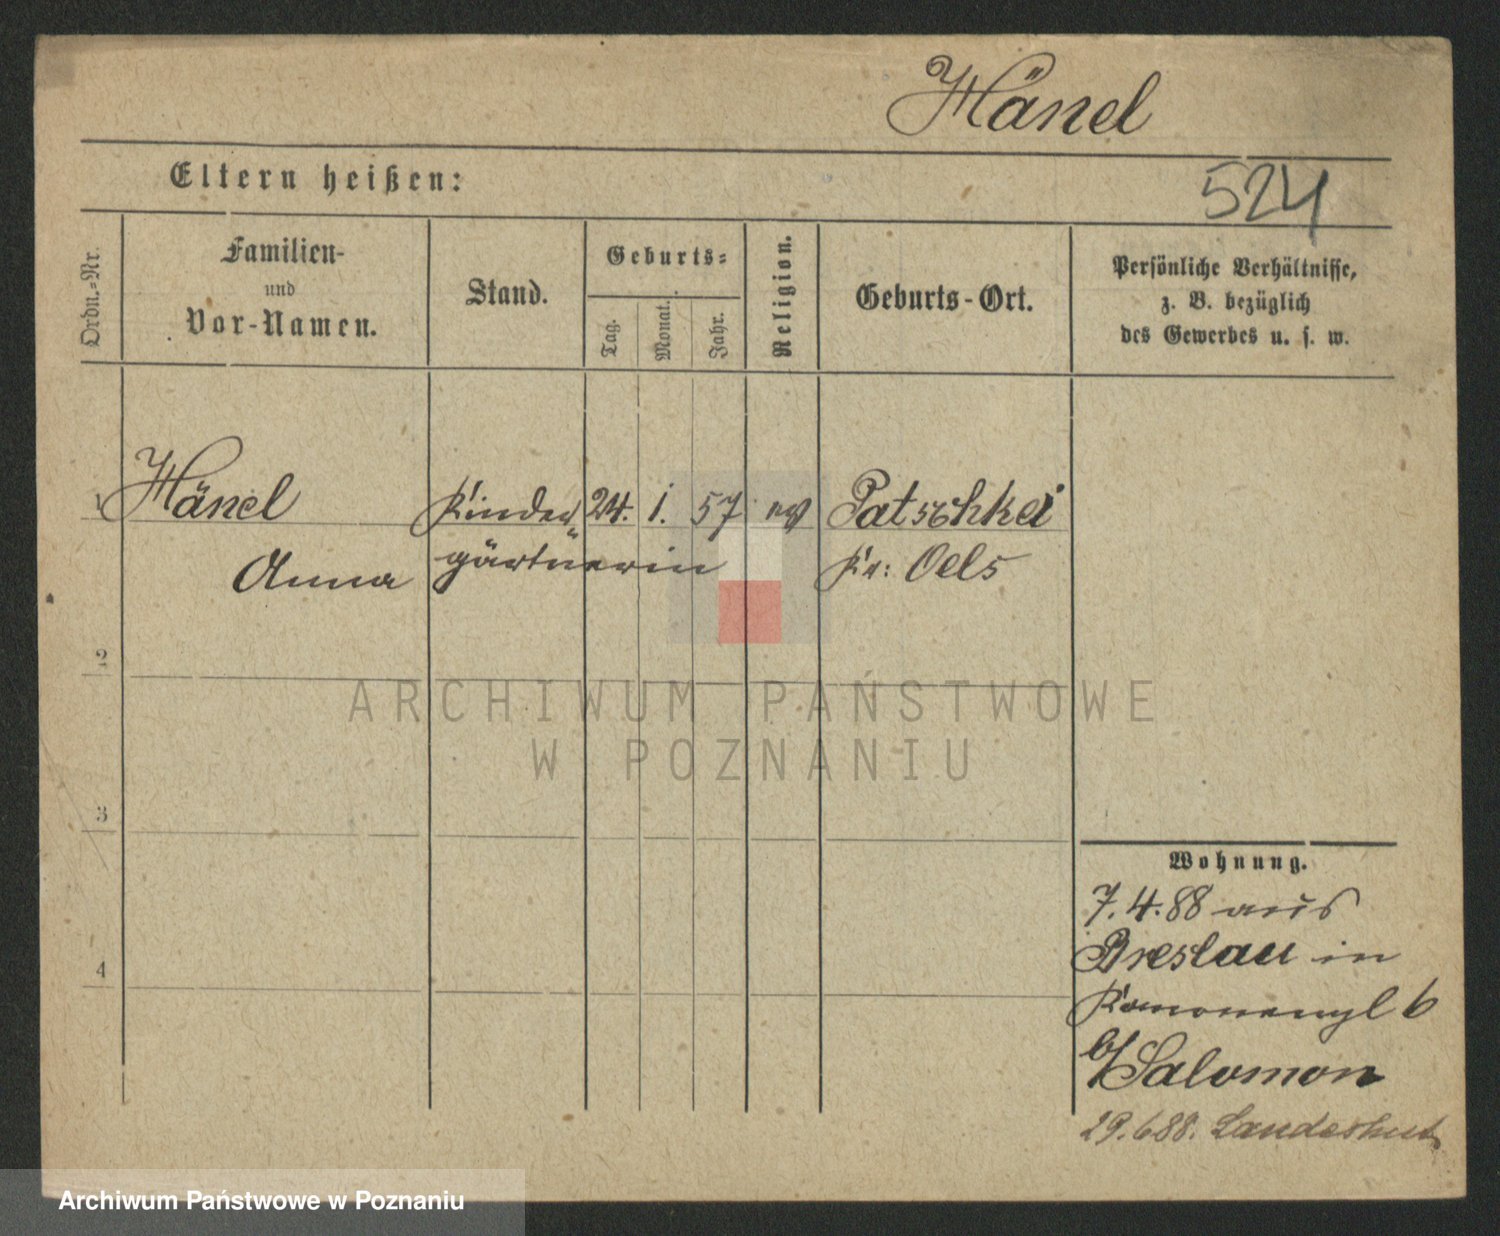 Hänel
Eltern heißen:
524
Ordn.=Nr.
Familien-
und
Vor-Namen.
Stand.
Geburts=
Tag.
Monat.
Jahr.
Religion.
Geburts-Ort.
Persönliche Verhältnisse,
z. B. bezüglich
des Gewerbes u. s. w.
1 Hänel Kinder 24. 1. 57 ev Patschkei
Anna gärtnerin Kr: Oels
2
ARCHIWUM PAŃSTWOWE
W POZNANIU
3
4
Wohnung.
7.4.88 aus
Breslau in
6
b/ Salomon
29.6 88. Landeshut
Archiwum Państwowe w Poznaniu